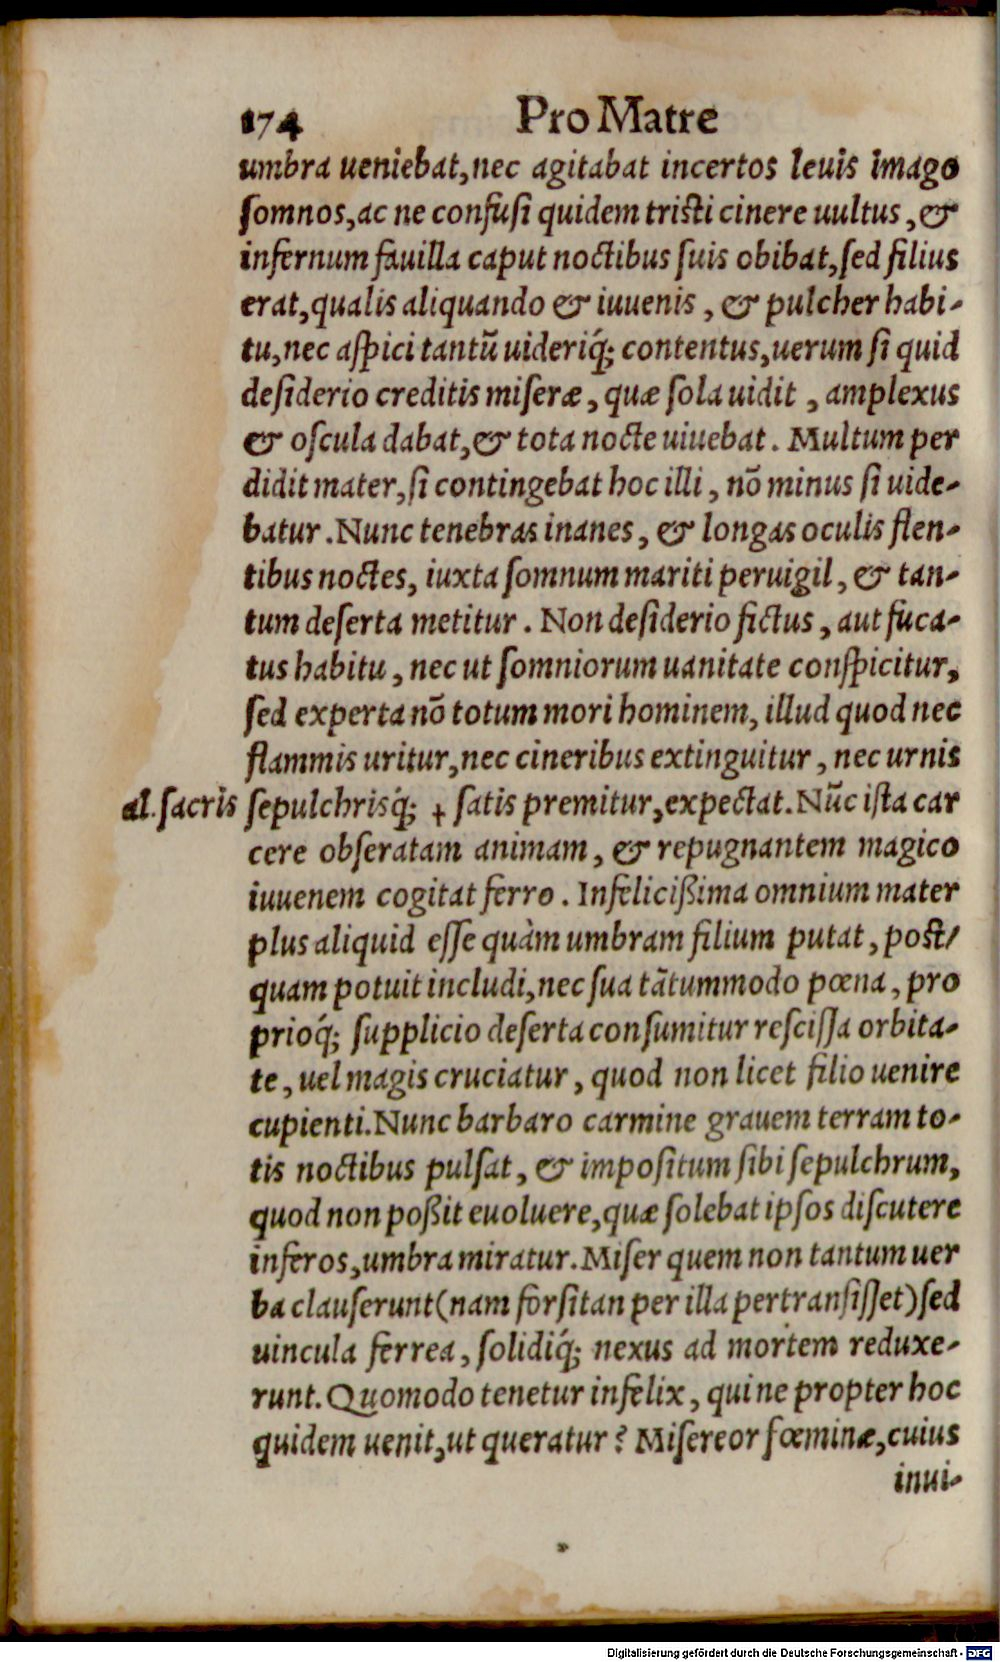 174 Pro Matre
umbra ueniebat, nec agitabat incertos leuis imago
somnos, ac ne confusi quidem tristi cinere uultus, &
infernum fauilla caput noctibus suis obibat, sed filius
erat, qualis aliquando & iuuenis, & pulcher habi-
tu, nec aspici tantũ uideriq́; contentus, uerum si quid
desiderio creditis miseræ, quæ sola uidit, amplexus
& oscula dabat, & tota nocte uiuebat. Multum per
didit mater, si contingebat hoc illi, nõ minus si uide-
batur. Nunc tenebras inanes, & longas oculis flen-
tibus noctes, iuxta somnum mariti peruigil, & tan-
tum deserta metitur. Non desiderio fictus, aut fuca-
tus habitu, nec ut somniorum uanitate conspicitur,
sed experta nõ totum mori hominem, illud quod nec
flammis uritur, nec cineribus extinguitur, nec urnis
al. sacris sepulchrisq́; † satis premitur, expectat. Nũc ista car
cere obseratam animam, & repugnantem magico
iuuenem cogitat ferro. Infelicißima omnium mater
plus aliquid esse quàm umbram filium putat, post/
quam potuit includi, nec sua tãtummodo pœna, pro
prioq́; supplicio deserta consumitur rescissa orbita-
te, uel magis cruciatur, quod non licet filio uenire
cupienti. Nunc barbaro carmine grauem terram to-
tis noctibus pulsat, & impositum sibi sepulchrum,
quod non poßit euoluere, quæ solebat ipsos discutere
inferos, umbra miratur. Miser quem non tantum uer
ba clauserunt (nam forsitan per illa pertransisset) sed
uincula ferrea, solidiq́; nexus ad mortem reduxe-
runt. Quomodo tenetur infelix, qui ne propter hoc
quidem uenit, ut queratur? Misereor fœminæ, cuius
inui-
Digitalisierung gefördert durch die Deutsche Forschungsgemeinschaft - DFG